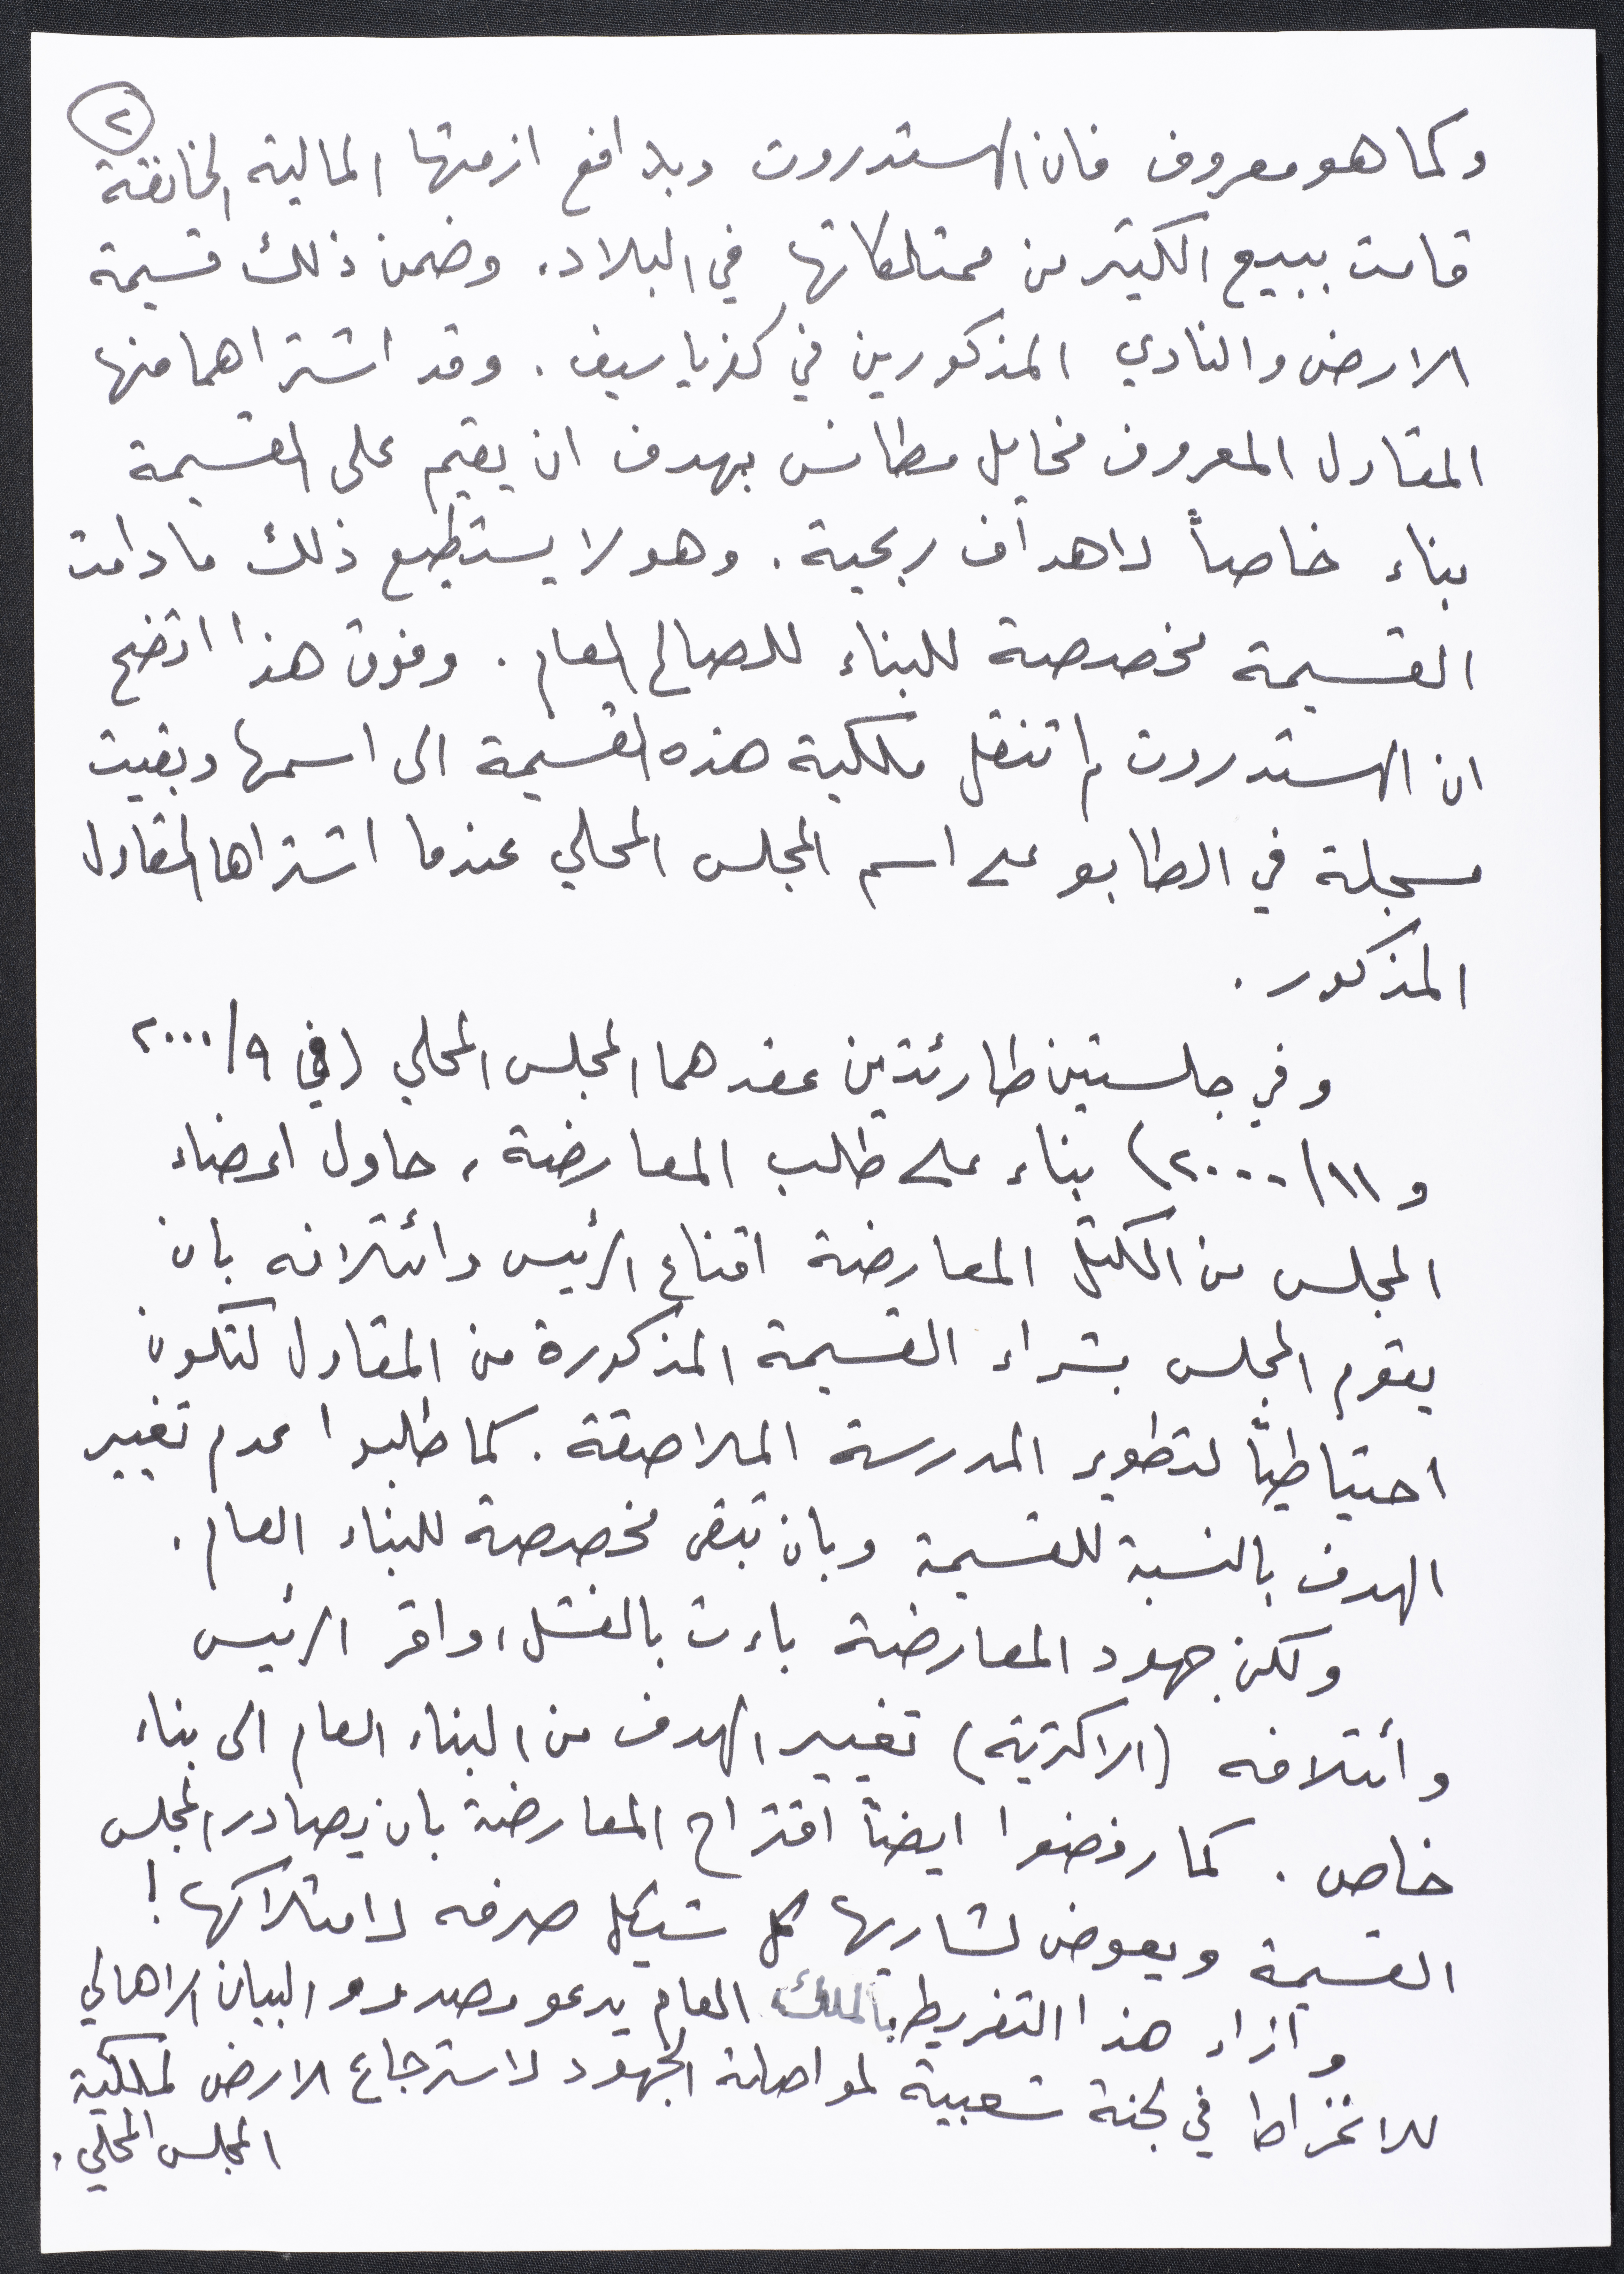 ٢
وكما هو معروف فان الهستدروت وبدافع ازمتها المالية الخانقة
قامت ببيع الكثير من ممتلكاتها في البلاد. وضمن ذلك قسيمة
الارض والنادي المذكورين في كفرياسيف. وقد اشتراهما منها
المقاول المعروف مخايل مطانس بهدف ان يقيم على القسيمة
بناء خاصاً لاهداف ربحية. وهو لا يستطيع ذلك ما دامت
القسيمة مخصصة للبناء للصالح العام. وفوق هذا اتضح
ان الهستدروت لم تنقل ملكية هذه القسيمة الى اسمها وبقيت
مسجلة في الطابو على اسم المجلس المحلي عندما اشتراها المقاول
المذكور.
وفي جلستين طارئتين عقدهما المجلس المحلي (في ٩/٢٠٠٠
و ١١/٢٠٠٠) بناء على طلب المعارضة، حاول اعضاء
المجلس من الكتل المعارضة اقناع الرئيس وائتلافه بان
يقوم المجلس بشراء القسيمة المذكورة من المقاول لتكون
احتياطياً لتطوير المدرسة الملاصقة. كما طلبوا عدم تغيير
الهدف بالنسبة للقسيمة وبان تبقى مخصصة للبناء العام.
ولكن جهود المعارضة باءت بالفشل، واقر الرئيس
وأئتلافه (الاكثرية) تغيير الهدف من البناء العام الى بناء
خاص. كما رفضوا ايضاً اقتراح المعارضة بان يصادر المجلس
القسيمة ويعوض لشاريها كل شيكل صرفه لامتلاكها!
وازاء هذا التفريط بالملك العام يدعو مصدرو البيان الاهالي
للانخراط في لجنة شعبية لمواصلة الجهود لاسترجاع الارض لملكية
المجلس المحلي.